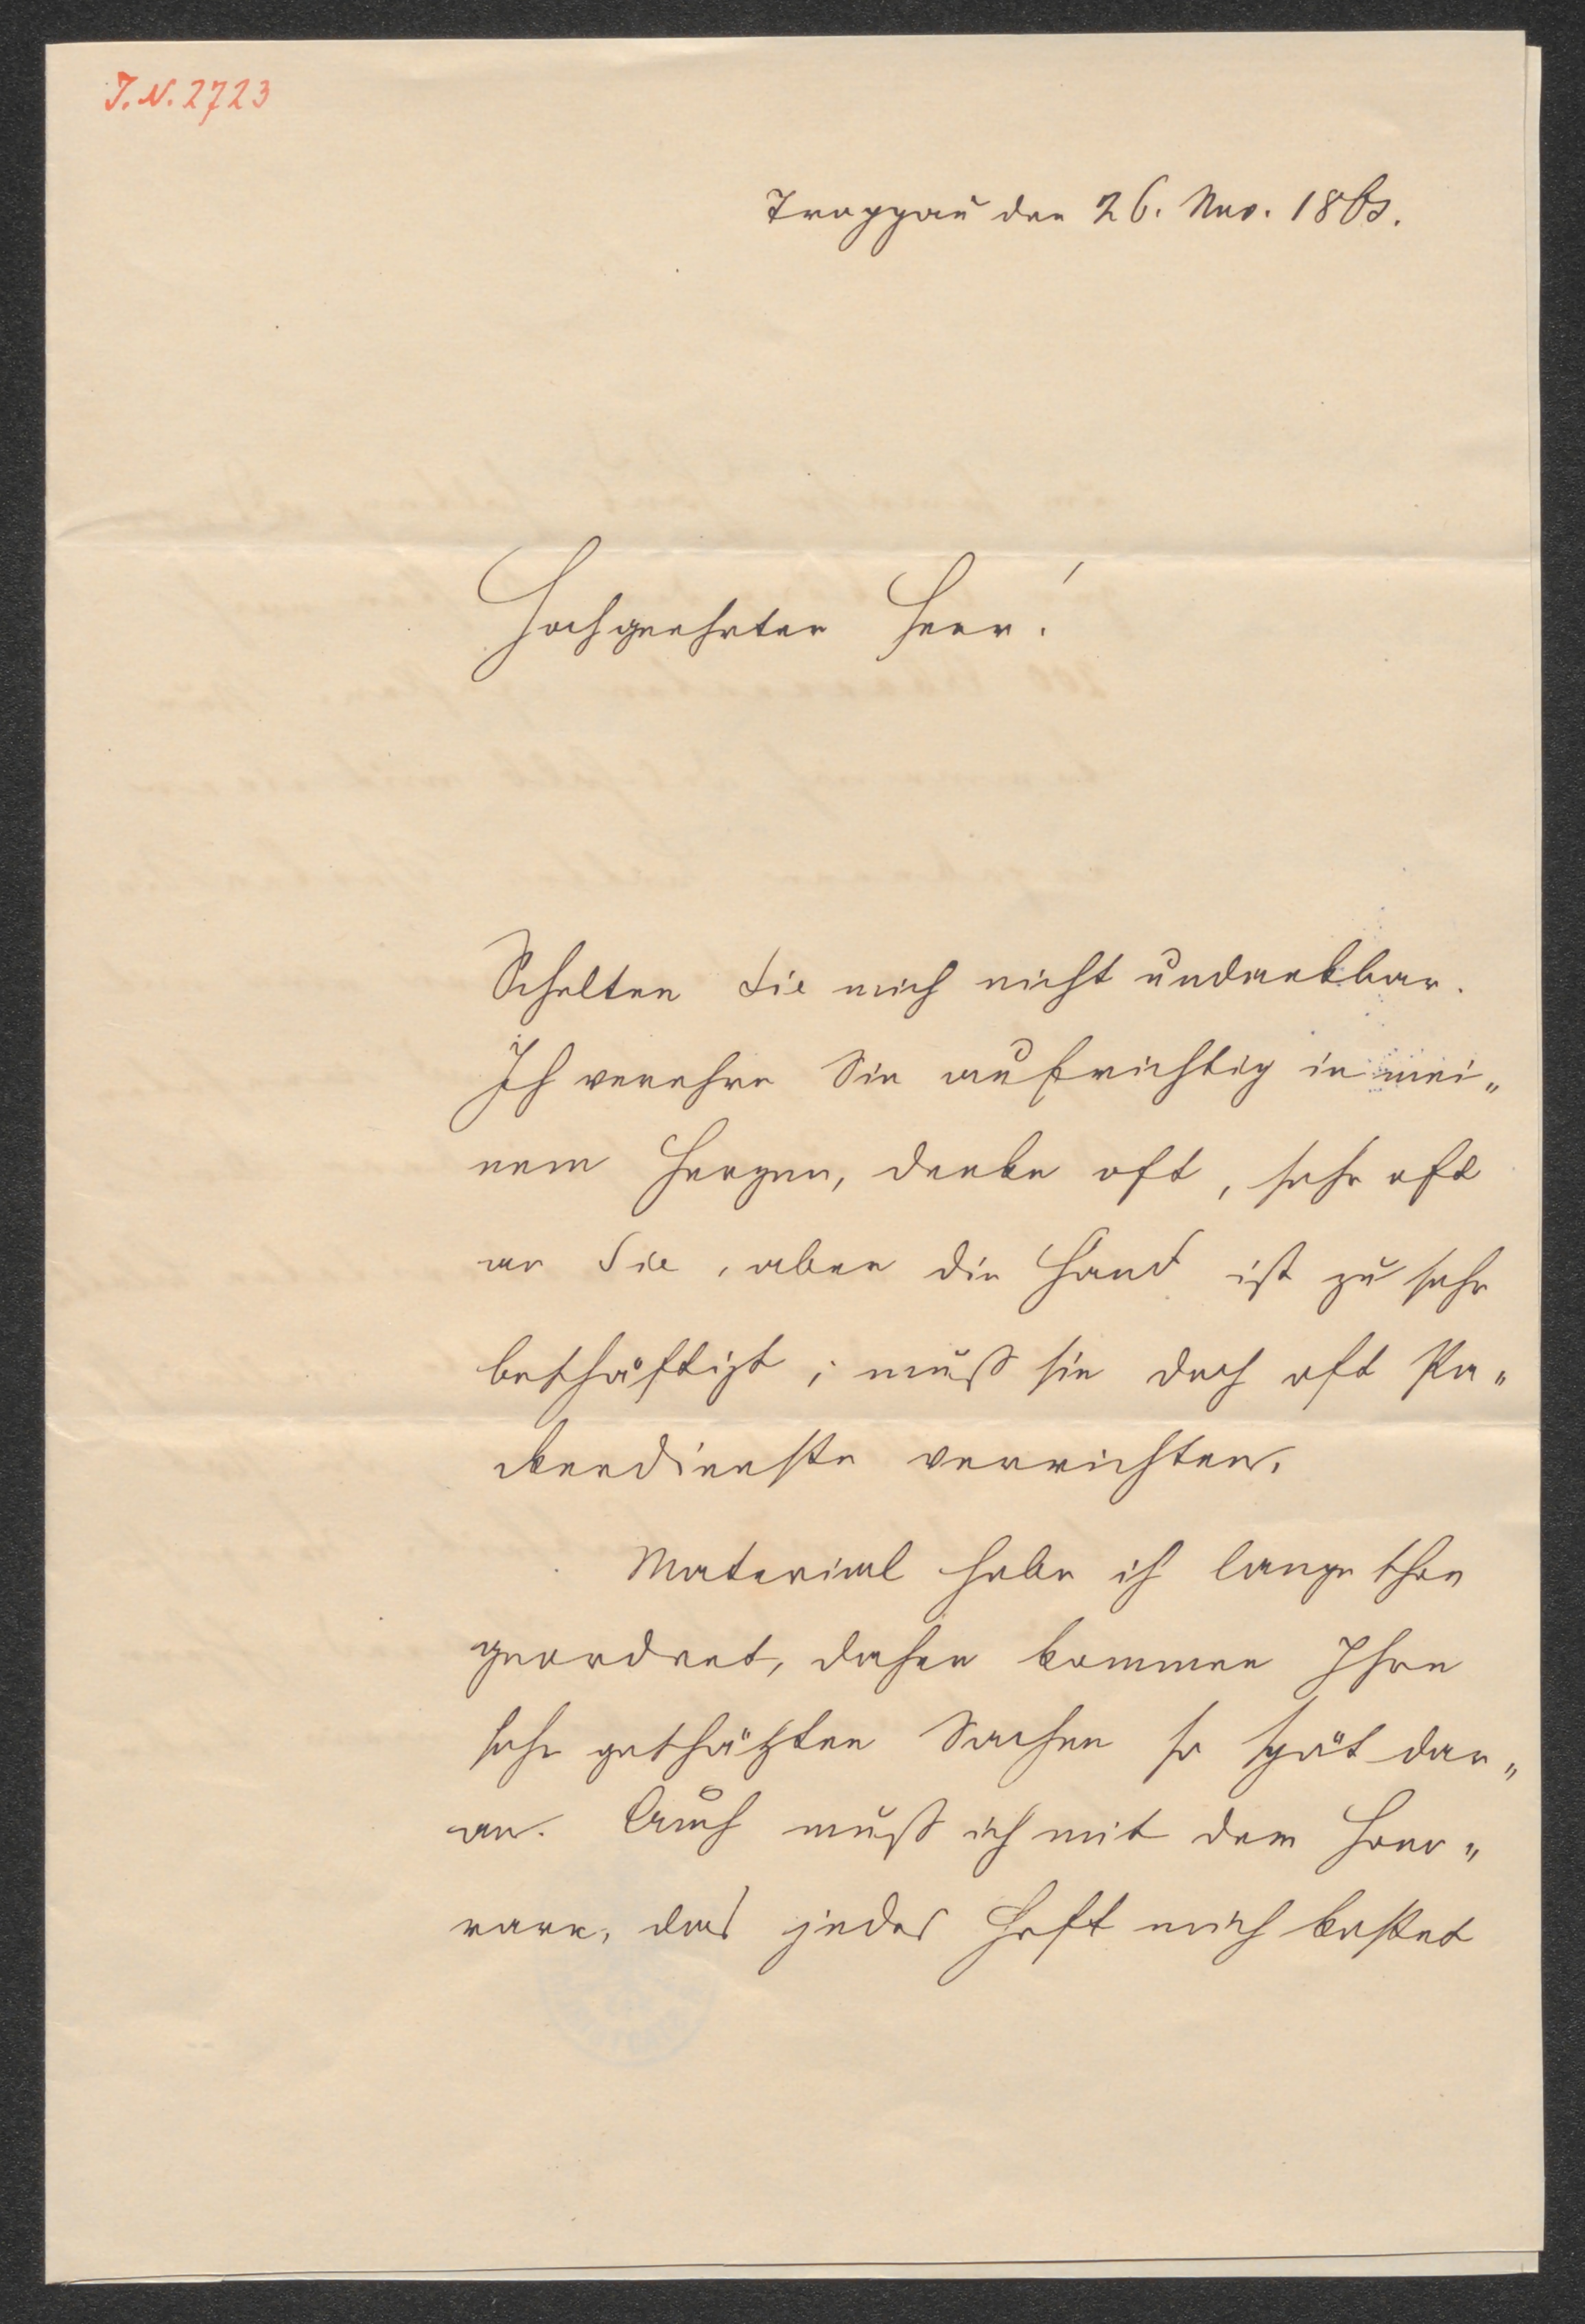 J.N. 2723
Troppau den 26. Nov. 1865.
Hochgeehrter Herr!
Schelten Sie mich nicht undankbar.
Ich verehre Sie aufrichtig in mei„
nem Herzen, denke oft, sehr oft
an Sie, aber die Hand ist zu sehr
beschäftigt; muß sie doch oft Pa„
ckerdienste verrichten.
Material habe ich lange schon
geordnet, daher kommen Ihre
sehr geschätzten Sachen so spät dar„
an. Auch muß ich mit dem Hono„
rare, das jedes Heft mich kostet